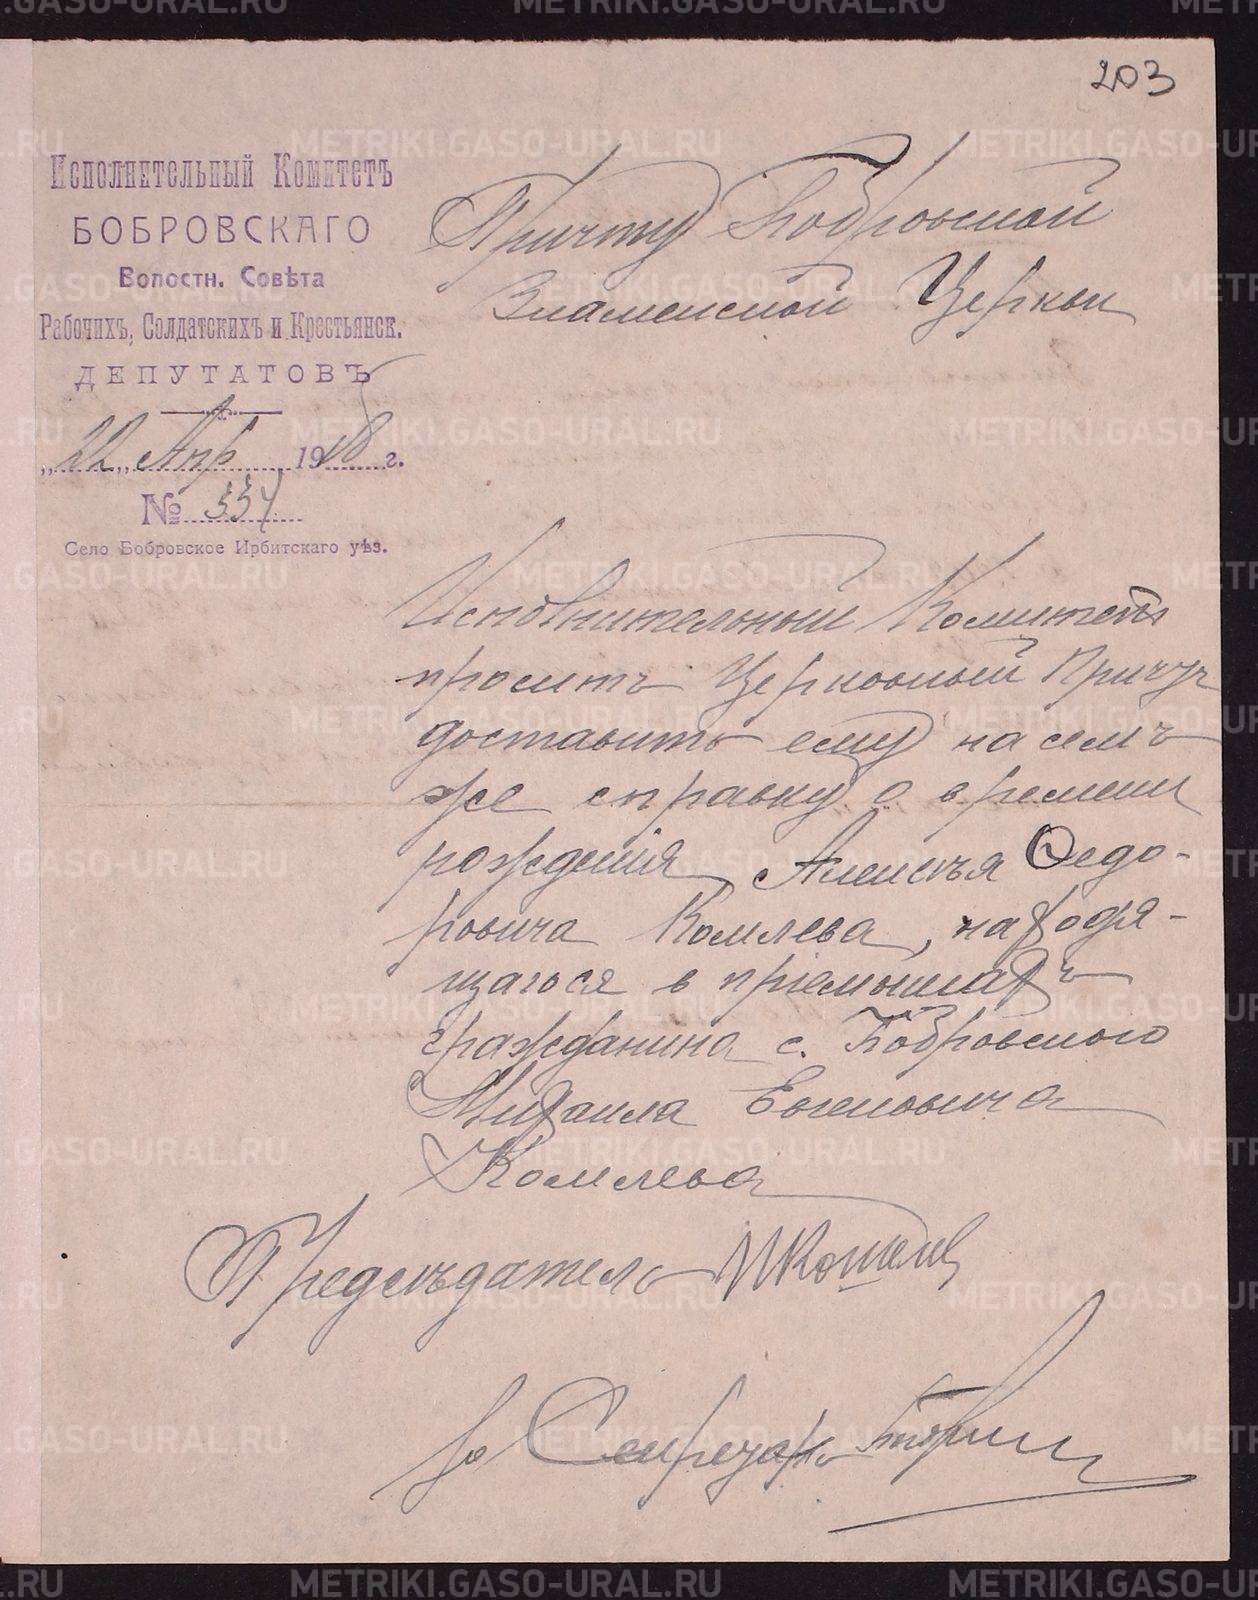 203
Исполнительный Комитетъ
БОБРОВСКАГО
Волостн. Совѣта
Рабочихъ, Солдатскихъ и Крестьянск.
ДЕПУТАТОВЪ
„22„ Апр 1918 г.
№ 334
Село Бобровское Ирбитскаго уѣз.
Причту Бобровской
Знаменской Церкви
Исполнительный Комитетъ
проситъ Церковный Причтъ
доставить ему на семъ
же справку о времени
рожденія Алексѣя Ѳедо-
ровича Комлева, находя-
щагося в пріемышахъ
гражданина с. Бобровского
Михаила Евгеновича
Комлева
Предсѣдатель
за Секретаря
METRIKI.GASO-URAL.RU